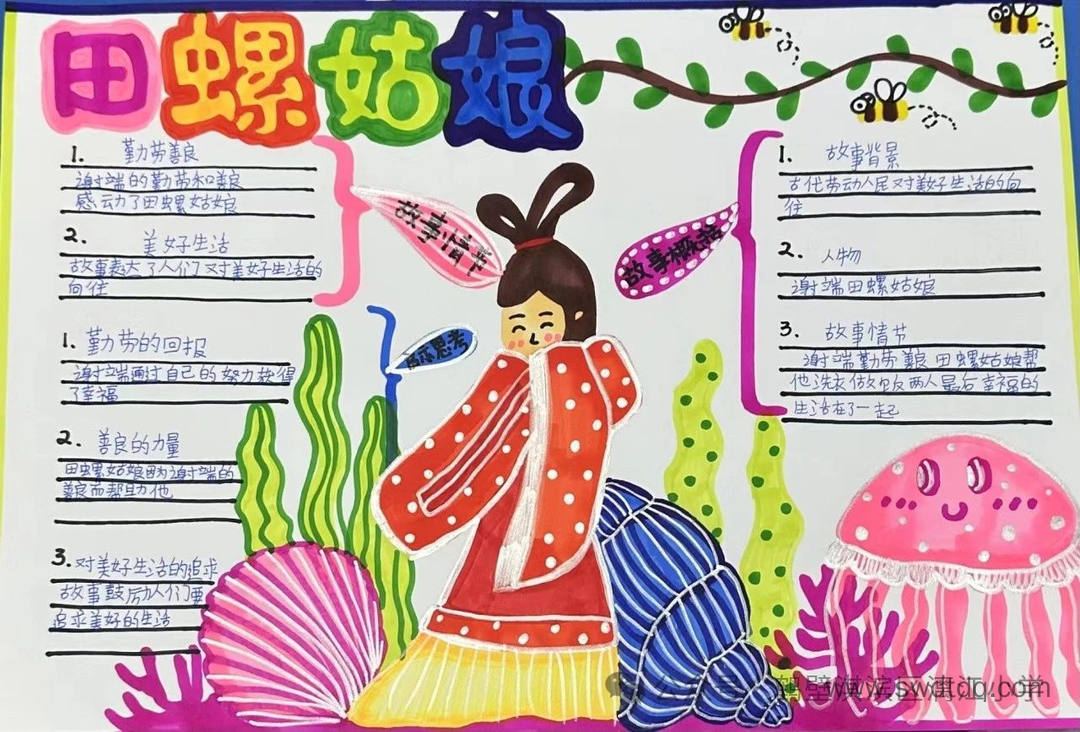 田螺姑娘
1. 勤劳善良
谢端的勤劳和善良
感动了田螺姑娘
2. 美好生活
故事表达了人们对美好生活的
向往
故事情节
1. 勤劳的回报
谢端通过自己的努力获得
了幸福
2. 善良的力量
田螺姑娘因为谢端的
善良而帮助他
3. 对美好生活的追求
故事鼓励人们要
追求美好的生活
思考
故事概括
1. 故事背景
古代劳动人民对美好生活的向
往
2. 人物
谢端田螺姑娘
3. 故事情节
谢端勤劳善良 田螺姑娘帮
他洗衣做饭两人最后幸福的
生活在了一起
公众号
www.swdtdq.com